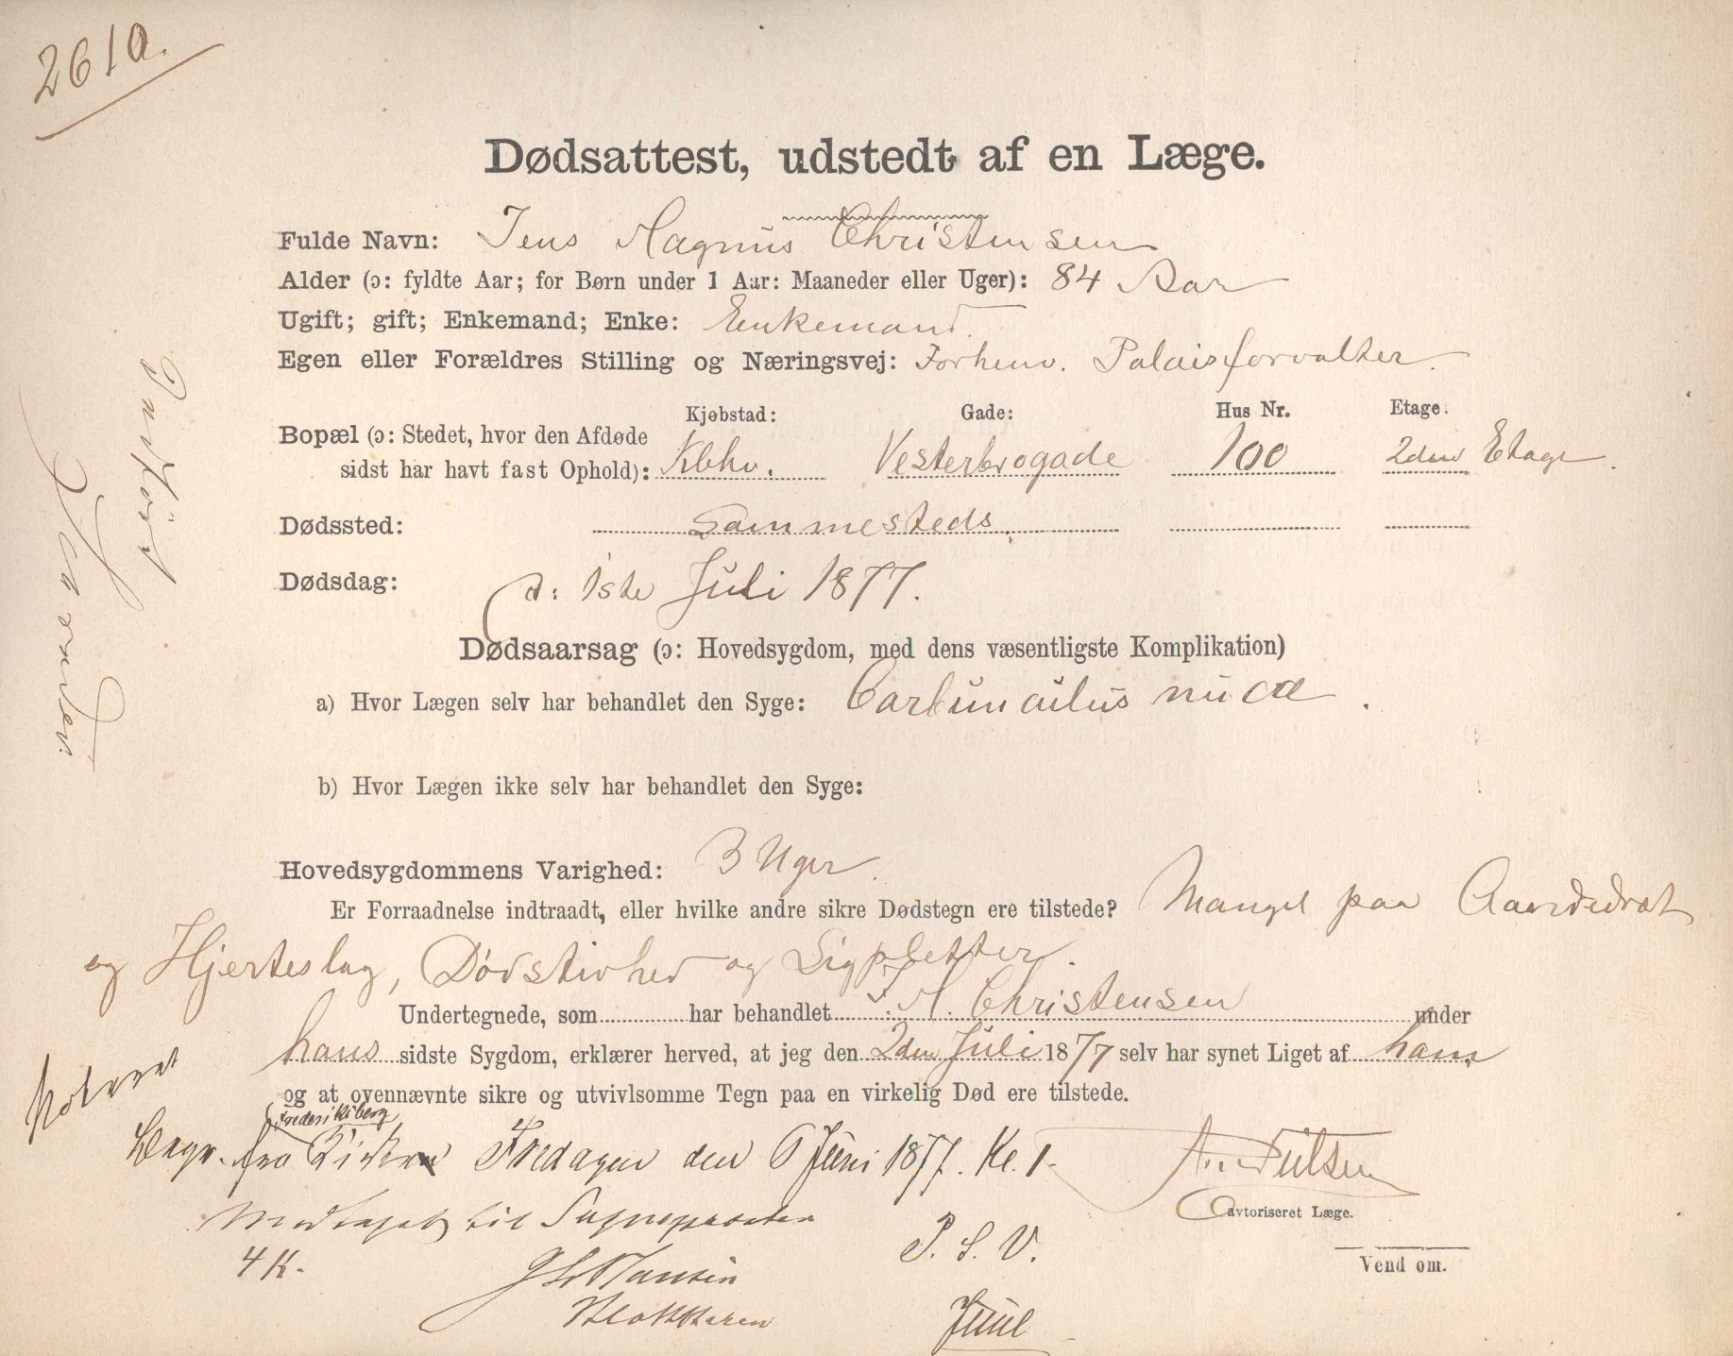 2610.
Dødsattest, udstedt af en Læge.
Fulde Navn: Jens Magnus Christensen
Alder (ɔ: fyldte Aar; for Børn under 1 Aar: Maaneder eller Uger): 84 Aar
Ugift; gift; Enkemand; Enke: Enkemand.
Egen eller Forældres Stilling og Næringsvej: Forhenv. Palaisforvalter.
Kjøbstad: Gade: Hus Nr. Etage.
Bopæl (ɔ: Stedet, hvor den Afdøde
sidst har havt fast Ophold): Kbhv. Vesterbrogade 100 2den Etage.
Dødssted: Sammesteds.
Dødsdag: d: 1ste Juli 1877.
Dødsaarsag (ɔ: Hovedsygdom, med dens væsentligste Komplikation)
a) Hvor Lægen selv har behandlet den Syge: Carbunculus nucæ.
b) Hvor Lægen ikke selv har behandlet den Syge:
Hovedsygdommens Varighed: 3 Uger.
Er Forraadnelse indtraadt, eller hvilke andre sikre Dødstegn ere tilstede? Mangel paa Aandedræt
og Hjerteslag, Dødstivhed og Ligpletter.
Undertegnede, som har behandlet J. M. Christensen under
hans sidste Sygdom, erklærer herved, at jeg den 2den Juli 1877 selv har synet Liget af hans
og at ovennævnte sikre og utvivlsomme Tegn paa en virkelig Død ere tilstede.
Frederiksberg
Begr. fra Kirken Fredagen den 6 Juni 1877. Kl. 1.
avtoriseret Læge.
til
4 K. P. S. V.
Vend om.
Juul